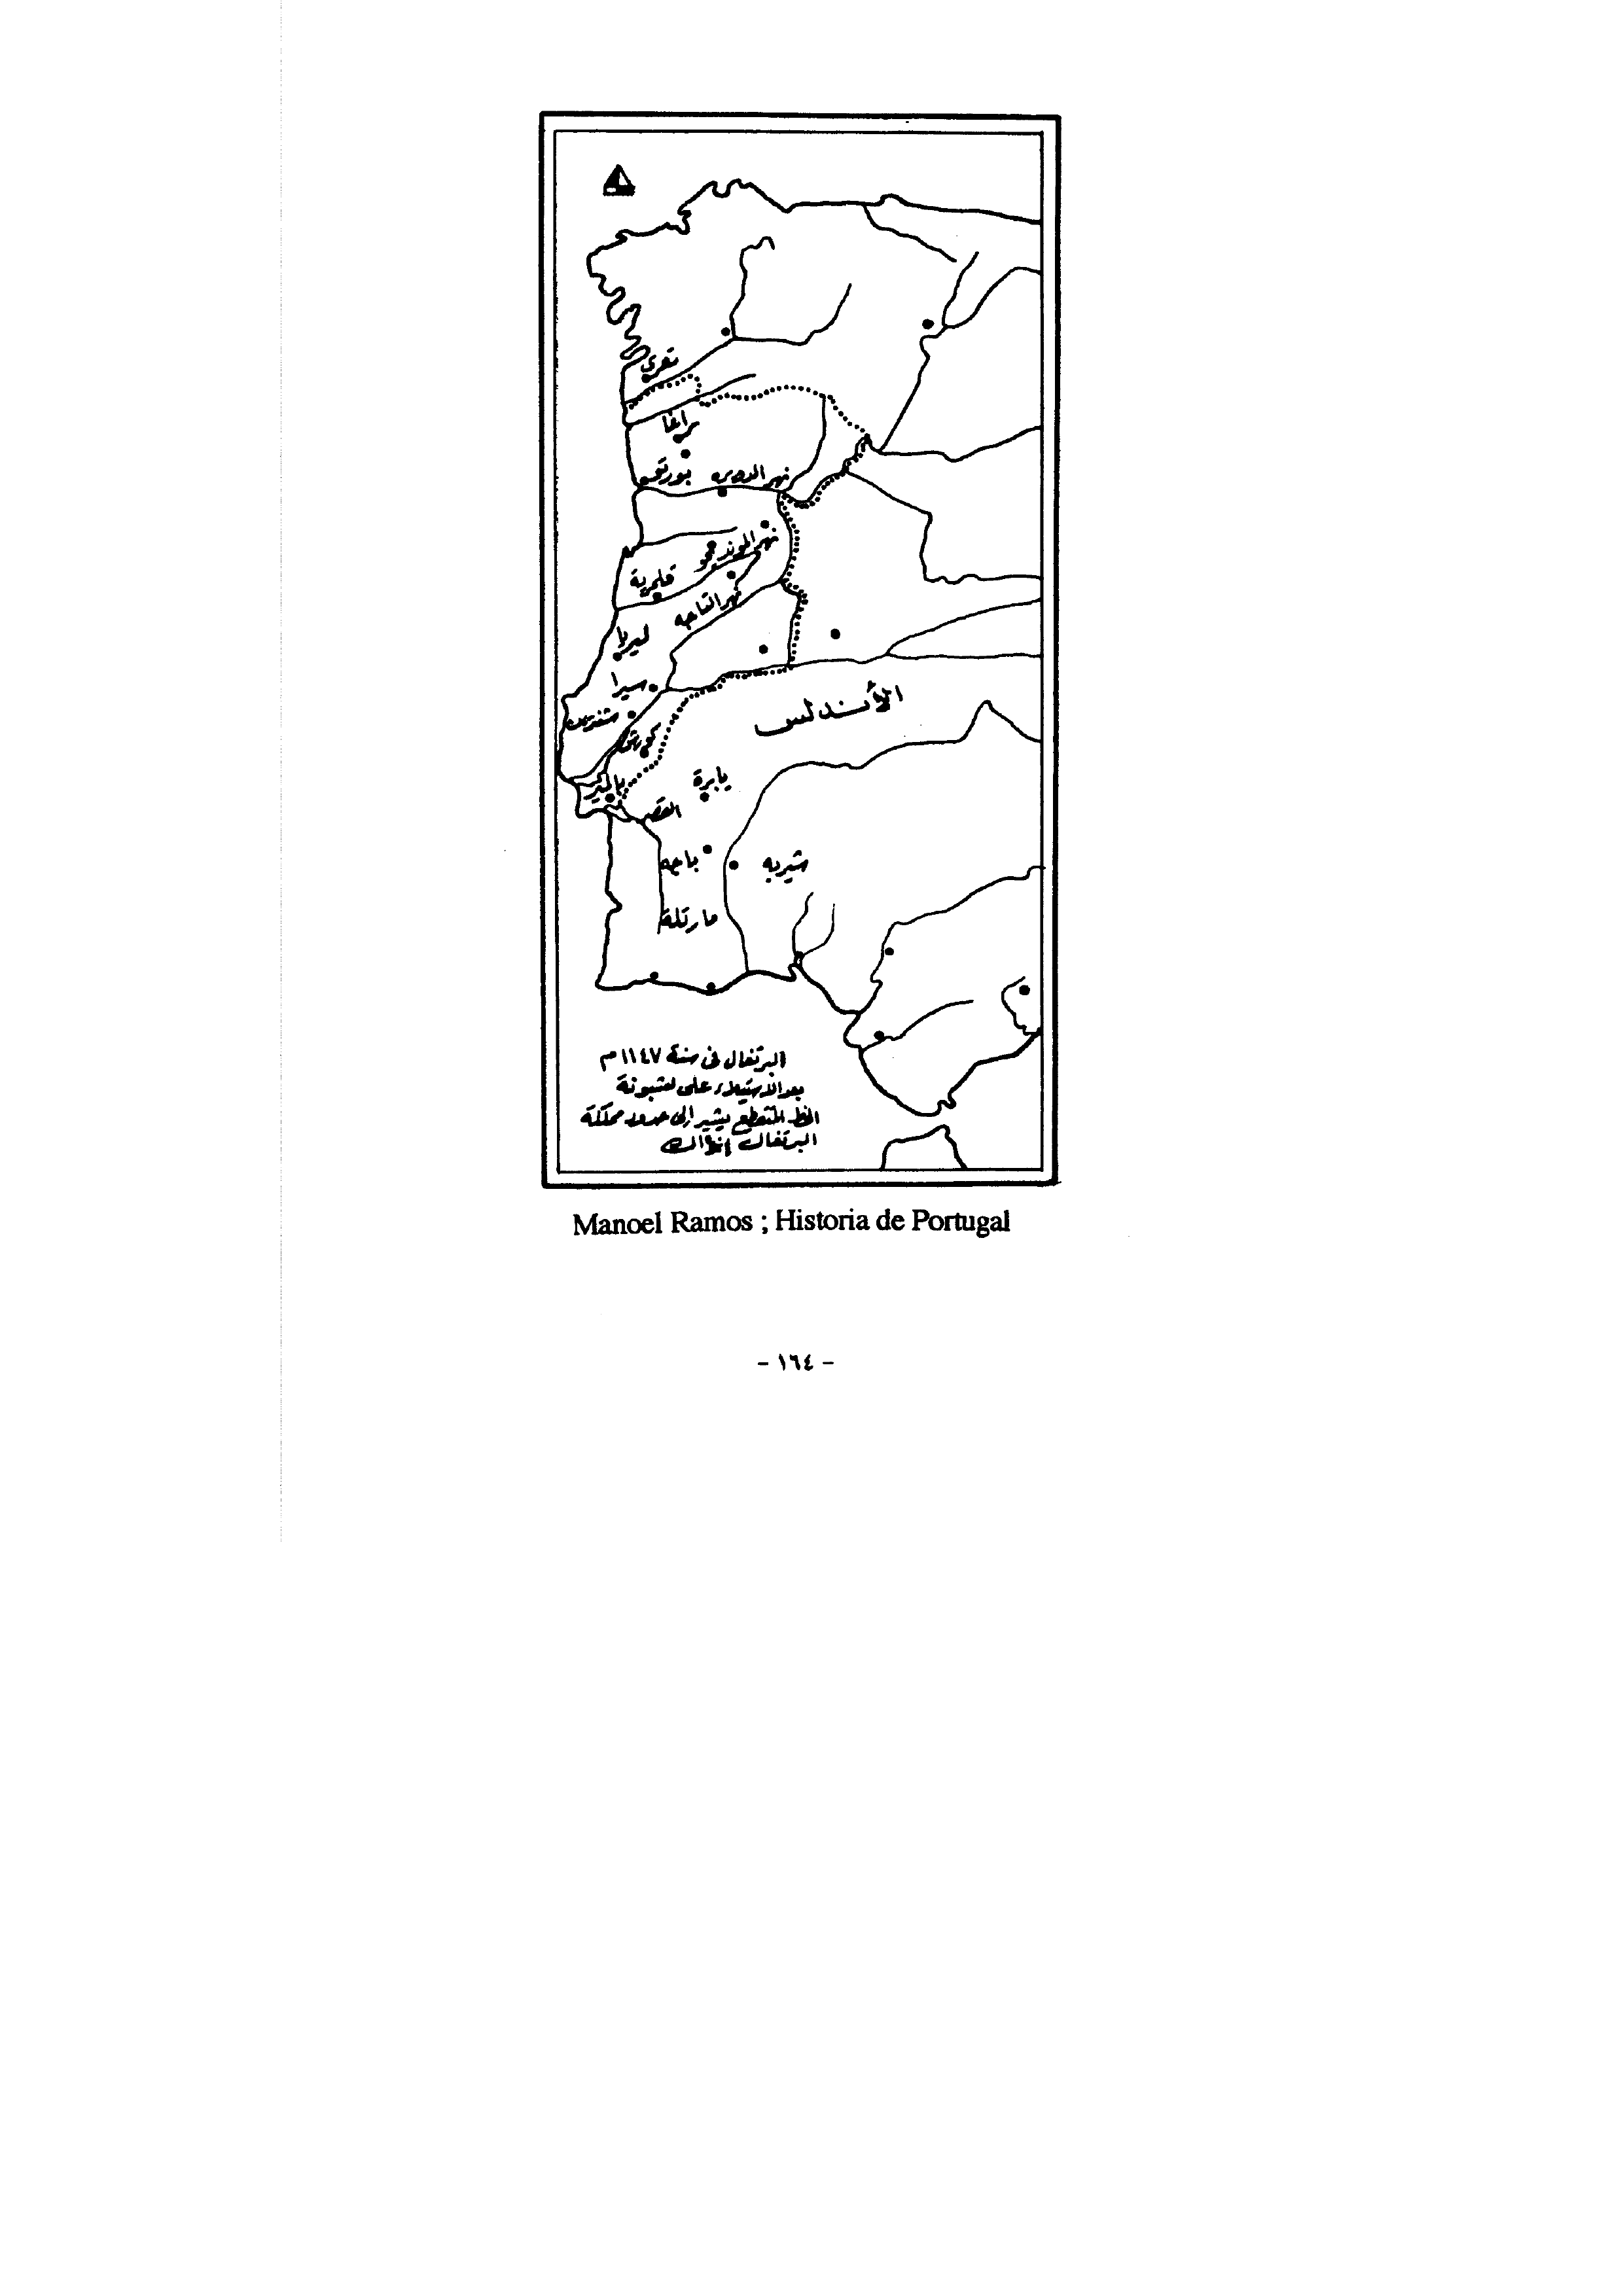 براغا
بورتو
نهر الدويره
نهر الموندجو
قلمرية
نهر التاجه
ليريا
سيرا
شنترين
الأندلس
يابرة
القصر
باجه
شيربه
مارتلة
البرتغال فى سنة ١١٤٧ م
بعد الاستيلاء على لشبونة
الخط المتقطع يشير إلى حدود مملكة
البرتغال إنذاك
Manoel Ramos ; Historia de Portugal
- ١٦٤ -